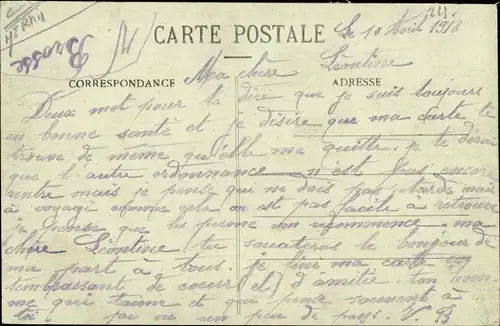 CARTE POSTALE
Le 10 Avril 1918
Ma chère Léontine
CORRESPONDANCE
ADRESSE
Deux mot pour te dire que je suis toujours
en bonne santé et je désire que ma carte te
trouve de même qu'elle me quitte. je te dirai
que l'autre ordonnance n'est pas encore
rentre mais je pense qui ne dois pas tarde mais
à voyagé comme cela on est pas facile a retrouve
je pense que les perme von recommence. ma
chère Léontine tu souateras le bonjour de
ma part à tous. je fini ma carte en
t'embrassant de coeur et d'amitée. ton homme
me qui t'aime et qui pense souvent à
toi. jai vu un peu de pays. B
Brosse